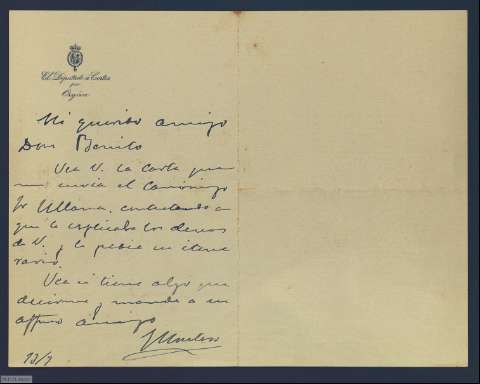 El Diputado a Cortes
por
Orgiva
Mi querido amigo
Don Benito
Vea V. la carta que
me envia el Canónigo
Sr Ullana, contestando a
que le explicaba los deseos
de V. y le pedia un itine
rario.
Vea si tiene algo que
decirme y mande a su
affmo amigo
13/9